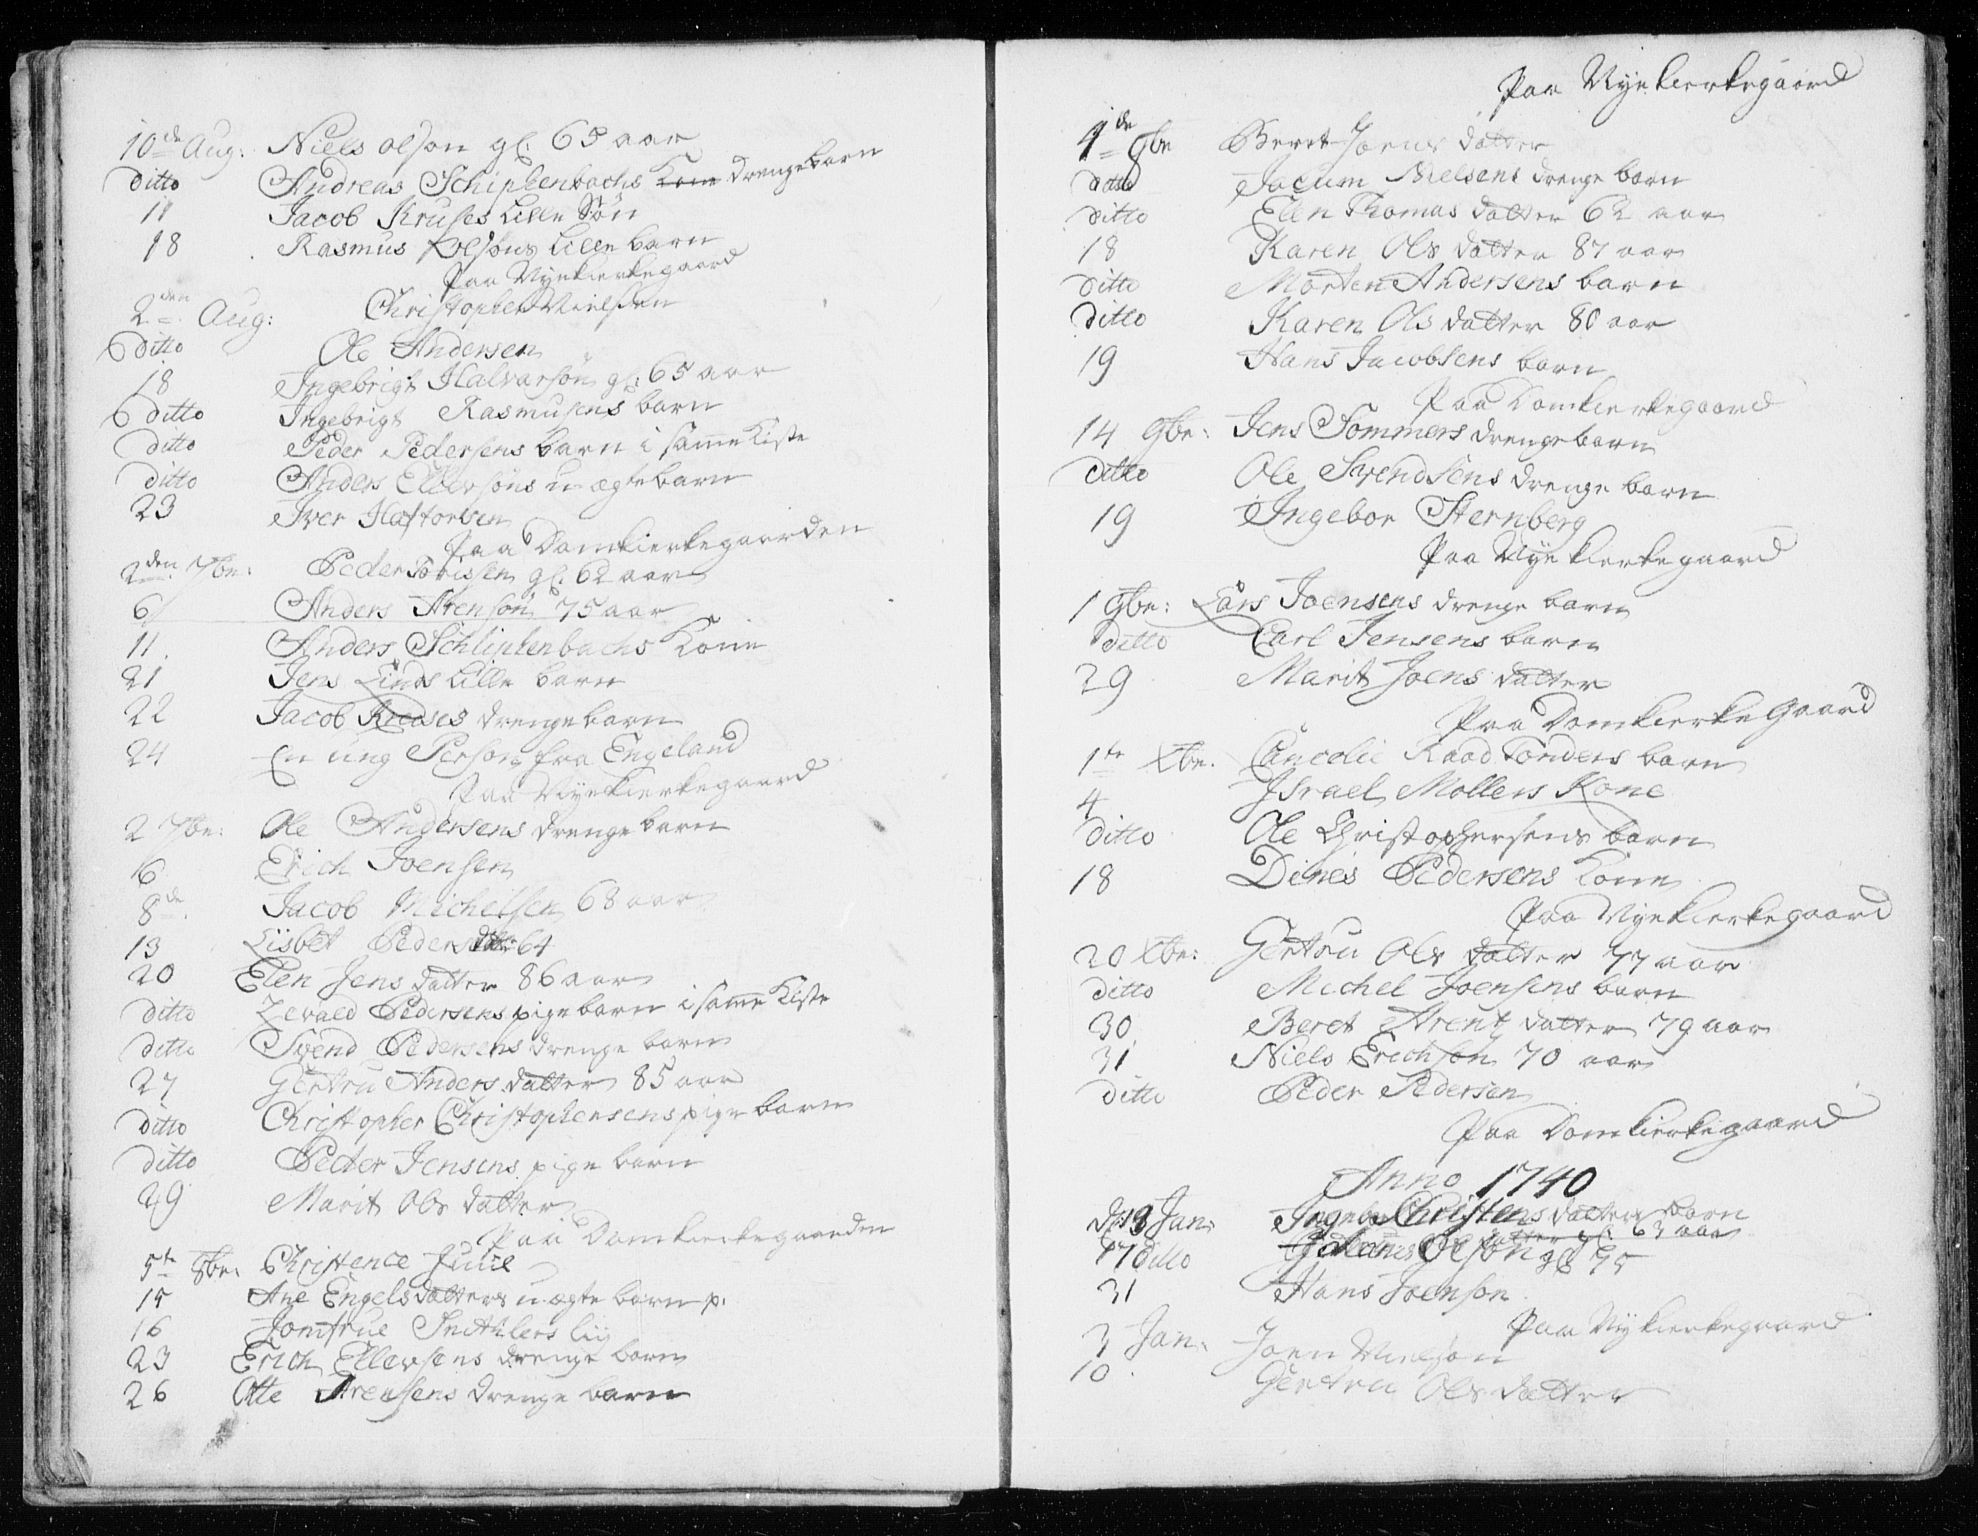 10de Aug: Niels olson gl: 65 aar
ditto Andreas Schiphenbachs Kone drengebarn
11 Jacob Kruses Lille Søn
18 Rasmus Lille barn
Paa Nyekierkegaard
2den Aug: Christopher Nielsen
6 ditto Ole Andersen
18 Ingebrigt Halvarson gl: 65 aar
6 ditto Ingebrigt Rasmusens barn
ditto Peder Pedersens barn i samme Kiste
ditto Anders Ellevsøns u-ægte barn
23 Iver Haftorsen
Paa Domkierkegaarden
2den 7br: Peder gl: 62 aar
6 Anders Arenson 75 aar
11. Anders Schliphenbachs Kone
21 Jens Linds Lille barn
22 Jacob Kruses drengebarn
24 En ung Person fra Engeland
Paa Nyekierkegaard
2 7br: Ole Andersens drenge barn
6 Erich Joensen
8de Jacob Michelsen 68 aar
13 Lisbet Peders datter 64
20 Elen Jens datter 86 aar
ditto Zevald Pedersens pige barn i samme Kiste
ditto Svend Pedersens drenge barn
27 Gertru Anders datter 85 aar
ditto Christopher Christophersens pige barn
ditto Peder Jensens pige barn
29 Marit Ols datter
Paa Domkierkegaarden
5te 8br: Christence Juul
15 Ane Engelsdatters u-ægte barn p.
16 Jomfrue Liig
23 Erich Ellevsens drenge barn
26 Otte Arensens drenge barn
Paa Nyekierkegaard
4de 8br Beret Joens datter
ditto Jacum Nielsens drenge barn
ditto Elen Thomas datter 62 aar
18 Karen Ols datter 87 aar
ditto Morten Andersens barn
ditto Karen Ols datter 80 aar
19 Hans Jacobsens barn
Paa Domkierkegaard
14 9br: Jens Sommers drengebarn
ditto Ole Svendsens drenge barn
19 Ingebor Sternberg
Paa Nye kierkegaard
1 9br: Lars Joensens drenge barn
ditto Carl Jensens barn
29 Marit Joens datter
Paa Domkierke Gaard
1te Xbr. Cancelie Raad Tønders barn
4 Israel Møllers Kone
ditto Ole Christophersens barn
18 Dines Pedersens Kone
Paa Nyekierkegaard
20 Xbr: Gertru Ols datter 77 aar
ditto Michel Joensens barn
30 Beret Arentz datter 79 aar
31 Niels Erichson 70 aar
ditto Peder Pedersen
Paa Domkierkegaard
Anno 1740
Jan: Christens datters barn
datter gl: 63 aar
17 ditto Olson gl 75
31 Hans Joenson
Paa Nykierkegaard
3 Jan: Joen Nielson
10. Gertru Ols datter